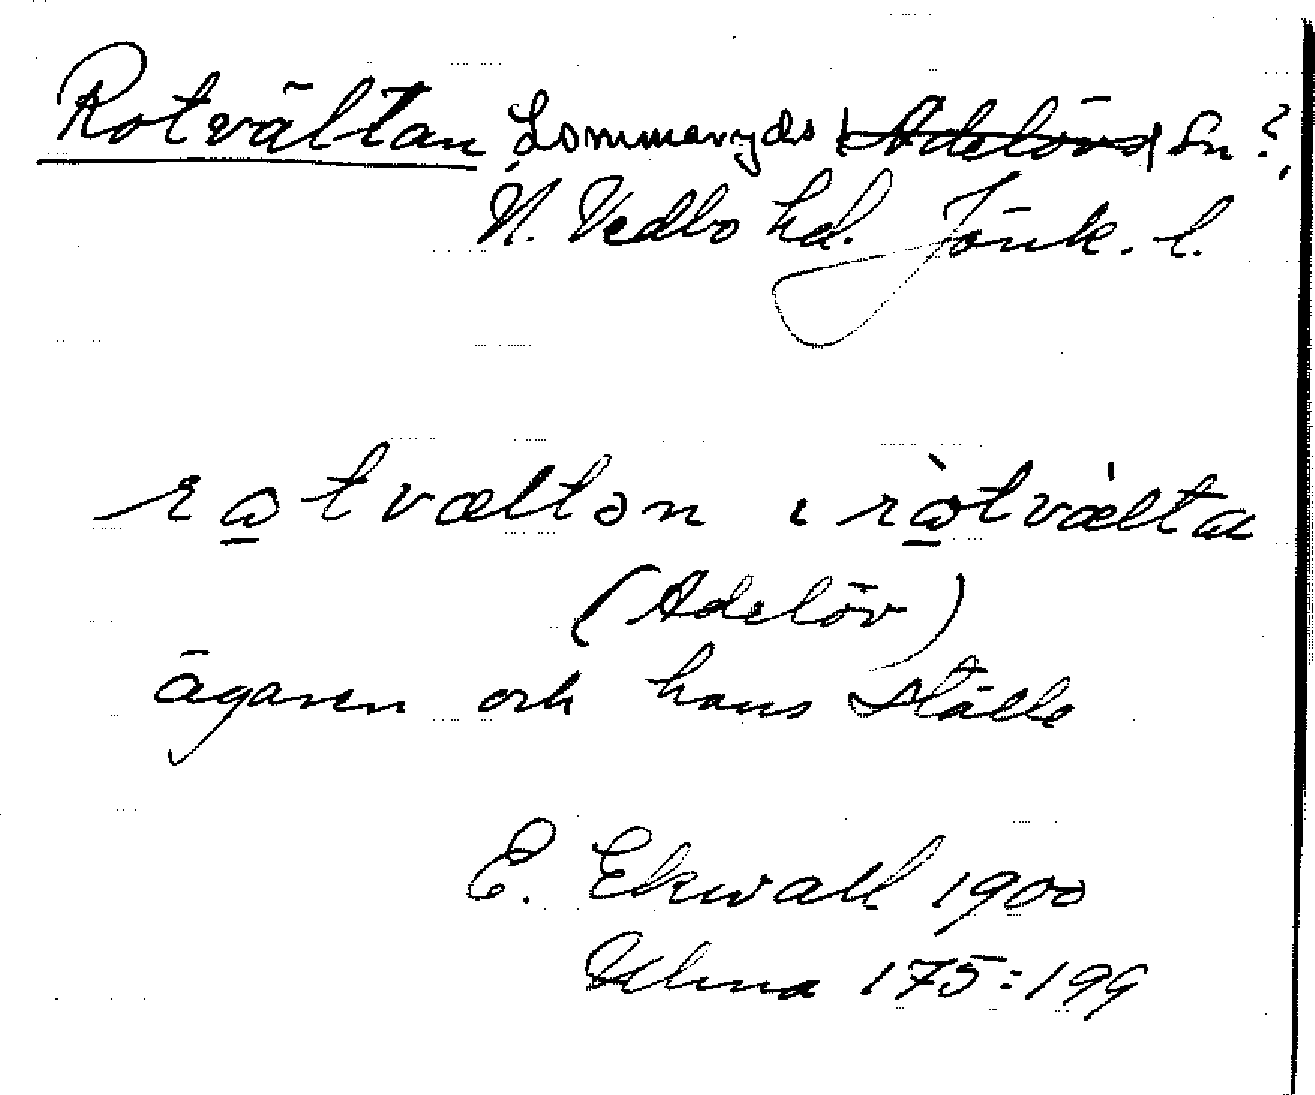 Rotvältan Lommaryds Adelövs Sn ?,
N. Vedbo hd. Jönk. l.
rotvæltən ı ròtvæ̀lta
(Adelöv)
ägaren och hans ställe
E. Ekwall 1900
Ulma 175:199